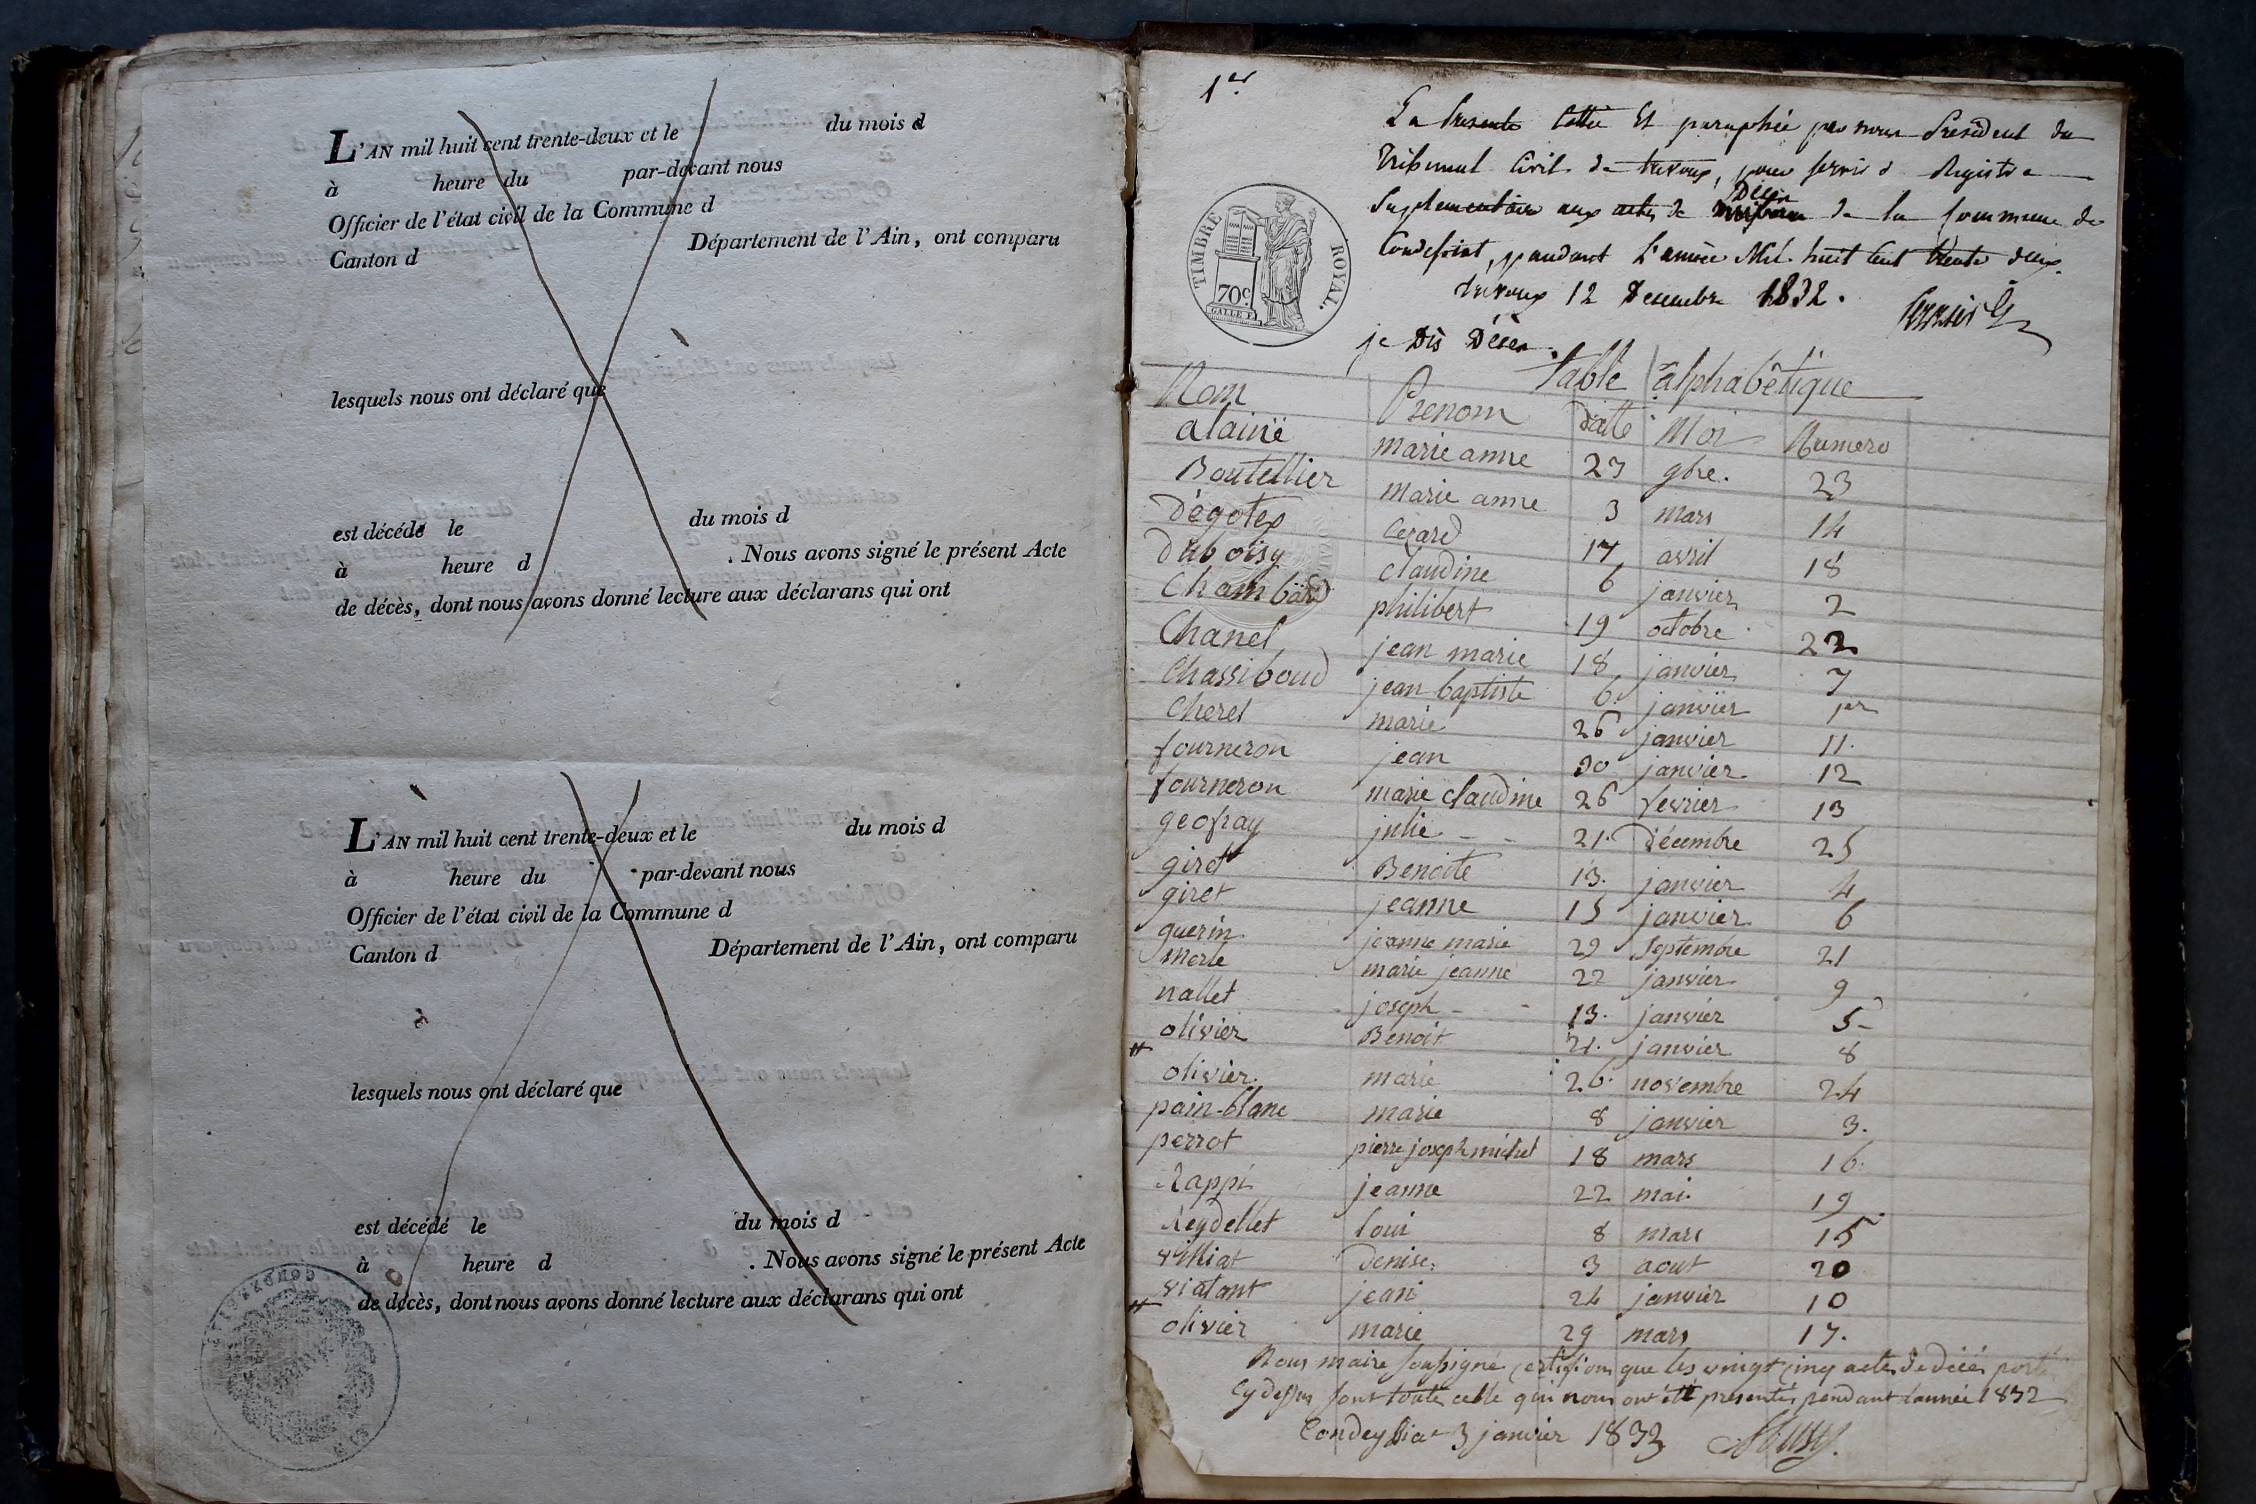 L'AN mil huit cent trente-deux et le du mois d
à heure du par-devant nous
Officier de l'état civil de la Commune d
Canton d Département de l'Ain, ont comparu
lesquels nous ont déclaré que
est décédé le du mois d
à heure d . Nous avons signé le présent Acte
de décès, dont nous avons donné lecture aux déclarans qui ont
L'AN mil huit cent trente-deux et le du mois d
à heure du par-devant nous
Officier de l'état civil de la Commune d
Canton d Département de l'Ain, ont comparu
lesquels nous ont déclaré que
est décédé le du mois d
à heure d . Nous avons signé le présent Acte
de décès, dont nous avons donné lecture aux déclarans qui ont
1er
La presente Cottée Et paraphée par nous President du
Tribunal Civil de trevoux, pour servir d Registre
Suplementaire aux actes de Décès de la Commune de
Condeissiat, pendant L'année Mil huit Cent trente deux.
trevoux 12 Decembre 1832.
je Dis Décès.
TIMBRE ROYAL.
70c
GALLE F.
Table alphabêtique
Nom Prenom datte Moi Numero
alainë marie anne 27 9bre. 23
Boutellier marie anne 3 mars 14
Dégotex Cezard 17 avril 18
duboisy claudine 6 janvier 2
Chambard philibert 19 octobre 22
Chanel jean marie 18 janvier 7
Chassiboud jean baptiste 6 janvier 1er
Cherel marie 26 janvier 11.
fourneron jean 30 janvier 12
fourneron marie claudine 26 fevrier 13
geofray julie 21. décembre 25
giret Benoite 13. janvier 4
giret jeanne 15 janvier 6
guerin jeanne marie 29 septembre 21
Merle marie jeanne 22 janvier 9
nallet joseph 13. janvier 5
olivier Benoit 21. janvier 8
olivier. marie 26. novembre 24
pain-blanc marie 8 janvier 3.
perrot pierre joseph michel 18 mars 16.
Rappi jeanne 22 mai. 19
Reydellet loui 8 mars 15
villiat Denise 3 aout 20
viatant jean 24 janvier 10
olivier marie 29 mars 17.
Nous maire soussigné certifions que les vingt cinq actes de décés porté
Cy dessus sont toute celle qui nous ont été presentés pendant lannée 1832
Condeyssiat 3 janvier 1833